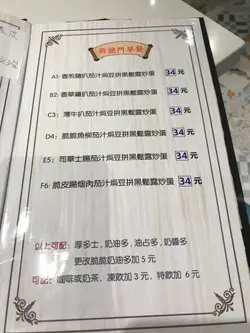 新龍門早餐
A1: 香煎豬扒茄汁焗豆拼黑鬆露炒蛋 34元
B2: 香草雞扒茄汁焗豆拼黑鬆露炒蛋 34元
C3: 薄牛扒茄汁焗豆拼黑鬆露炒蛋 34元
D4: 脆脆魚柳茄汁焗豆拼黑鬆露炒蛋 34元
E5: 司華士腸茄汁焗豆拼黑鬆露炒蛋 34元
F6: 脆皮腸烟肉茄汁焗豆拼黑鬆露炒蛋 34元
以上可配: 厚多士, 奶油多, 油占多, 奶醬多
更改脆脆奶油多加5元
可配: 咖啡或奶茶, 凍飲加3元, 特飲加 6元